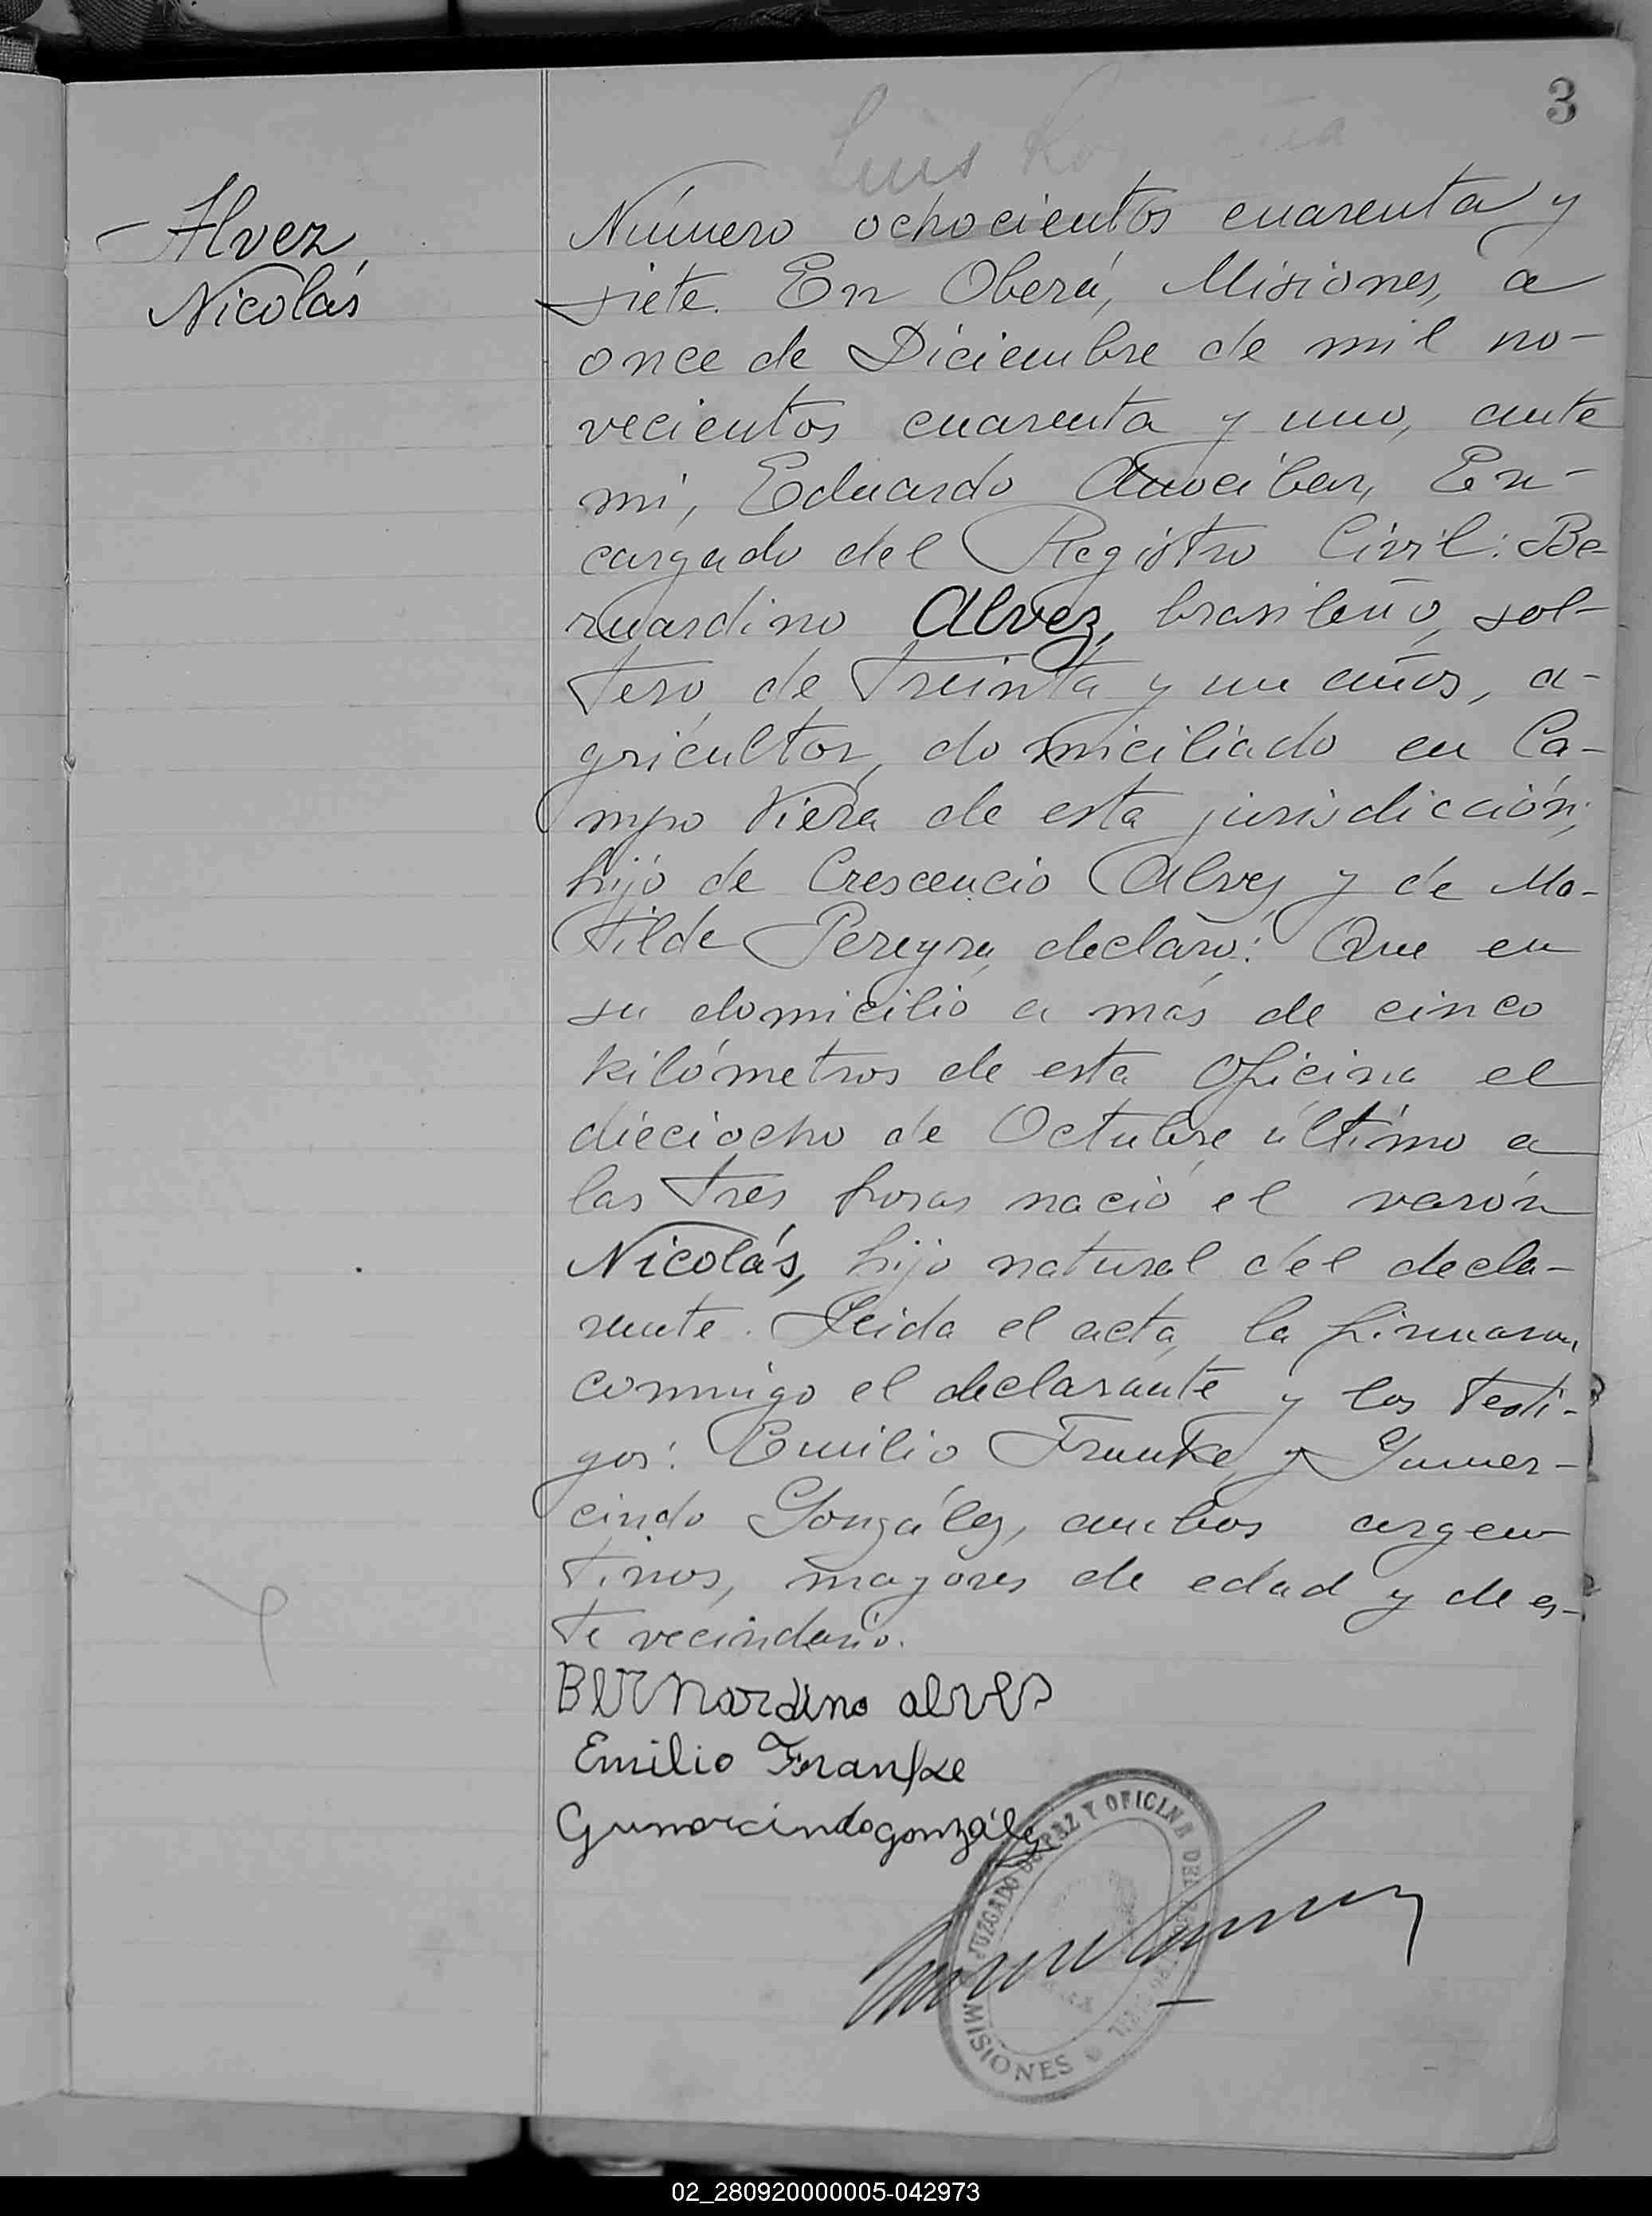 3
Luis
Alvez,
Nicolás
Número ochocientos cuarenta y
siete. En Oberá, Misiones, a
once de Diciembre de mil no-
vecientos cuarenta y uno, ante
mi, Eduardo Arocibar, En-
cargado del Registro Civil: Be-
rnardino Alvez, brasileño, sol-
tero, de treinta y un años, a-
gricultor, domiciliado en Ca-
mpo Viera de esta jurisdicción;
hijo de Crescencio Alvez y de Ma-
tilde Pereyra, declaró: Que en
su domicilio a más de cinco
kilómetros de esta Oficina el
dieciocho de Octubre último a
las tres horas nació el varón
Nicolás, hijo natural del decla-
rante. Leida el acta, la firmaron
conmigo el declarante y los testi-
gos: Emilio Franke y Gumer-
cindo González, ambos argen
tinos, mayores de edad y de es-
te vecindario.
Bernardino alves
Emilio Franke
Gumercindo gonzález
JUZGADO DE PAZ Y OFICINA DEL REGISTRO CIVIL
MISIONES
02_280920000005-042973